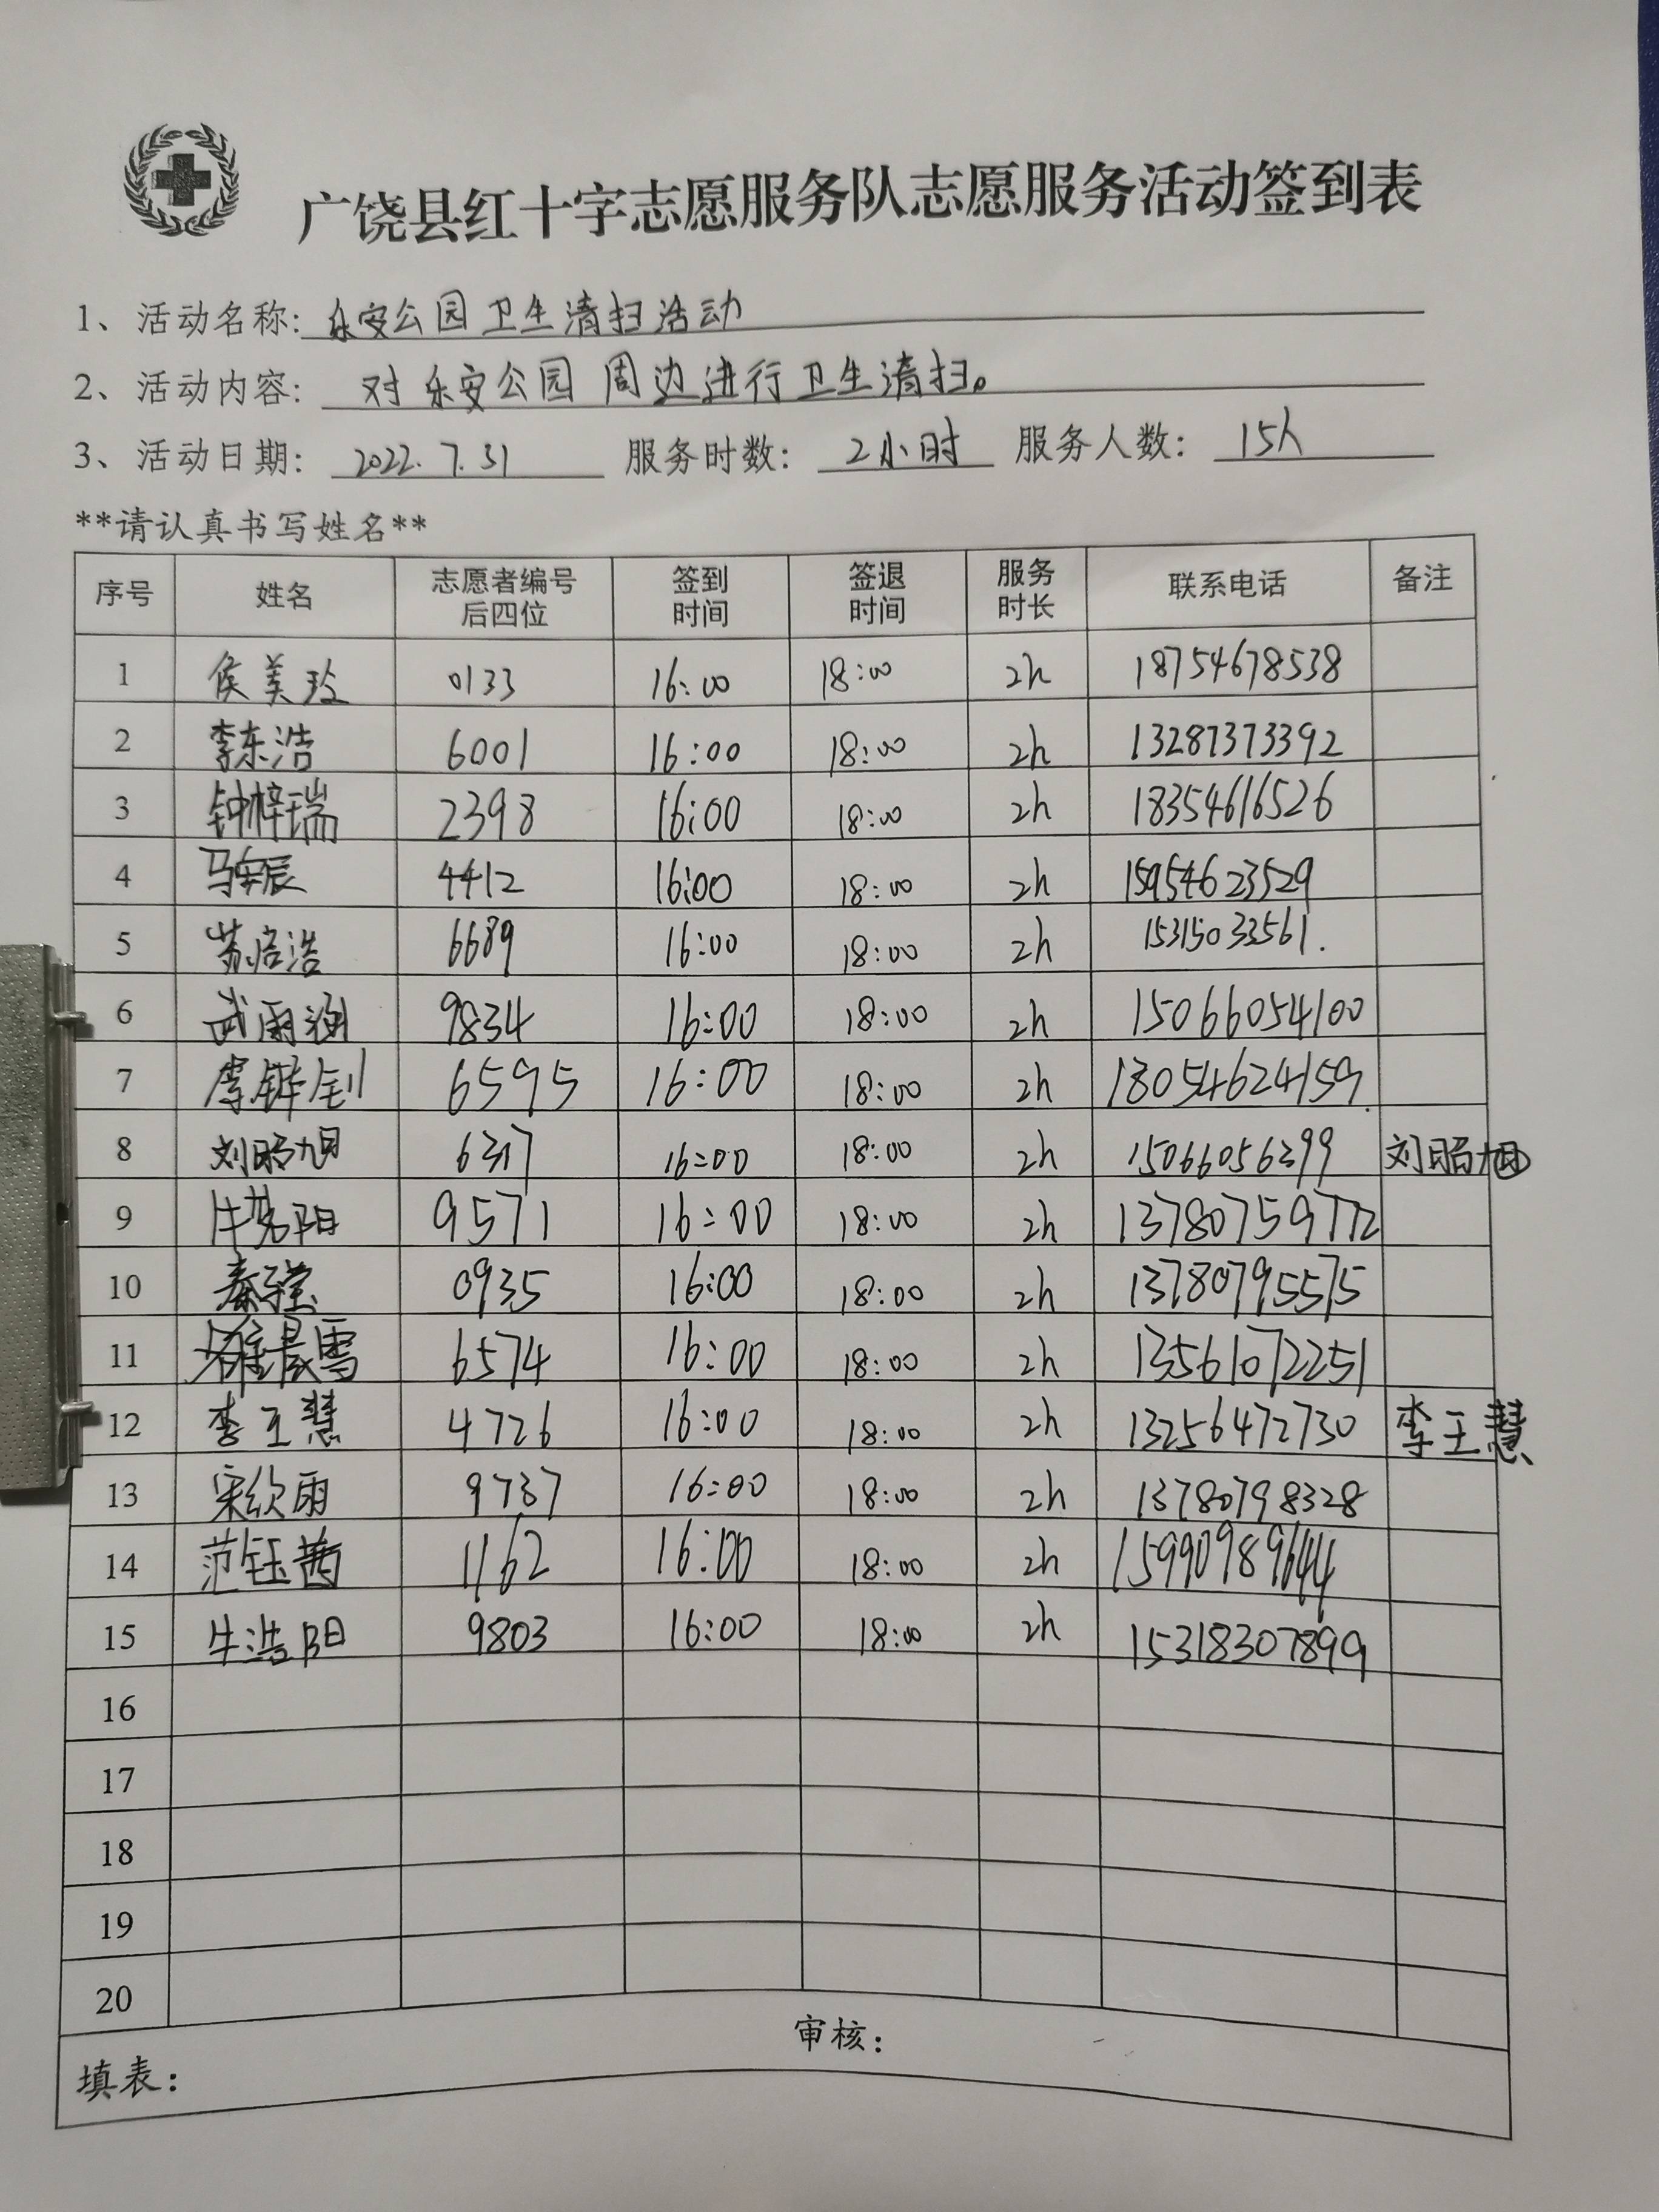 广饶县红十字志愿服务队志愿服务活动签到表
1、活动名称: 乐安公园卫生清扫活动
2、活动内容: 对乐安公园周边进行卫生清扫。
3、活动日期: 2022.7.31 服务时数: 2小时 服务人数: 15人
**请认真书写姓名**
序号 姓名 志愿者编号后四位 签到时间 签退时间 服务时长 联系电话 备注
1 侯美玲 0133 16:00 18:00 2h 18754678538
2 李东浩 6001 16:00 18:00 2h 13287373392
3 钟梓瑞 2398 16:00 18:00 2h 18354616526
4 4412 16:00 18:00 2h 15954623529
5 6689 16:00 18:00 2h 15315033561.
6 武雨涵 9834 16:00 18:00 2h 15066054100
7 李铧钊 6595 16:00 18:00 2h 18054624159
8 刘昭旭 6317 16:00 18:00 2h 15066056399 刘昭旭
9 牛梦阳 9571 16:00 18:00 2h 13780759772
10 0935 16:00 18:00 2h 13780795575
11 6574 16:00 18:00 2h 13561072251
12 李王慧 4726 16:00 18:00 2h 13256472730 李王慧
13 宋欣雨 9737 16:00 18:00 2h 13780798328
14 范钰茜 1162 16:00 18:00 2h 15990989644
15 牛浩阳 9803 16:00 18:00 2h 15318307899
16
17
18
19
20
填表: 审核: